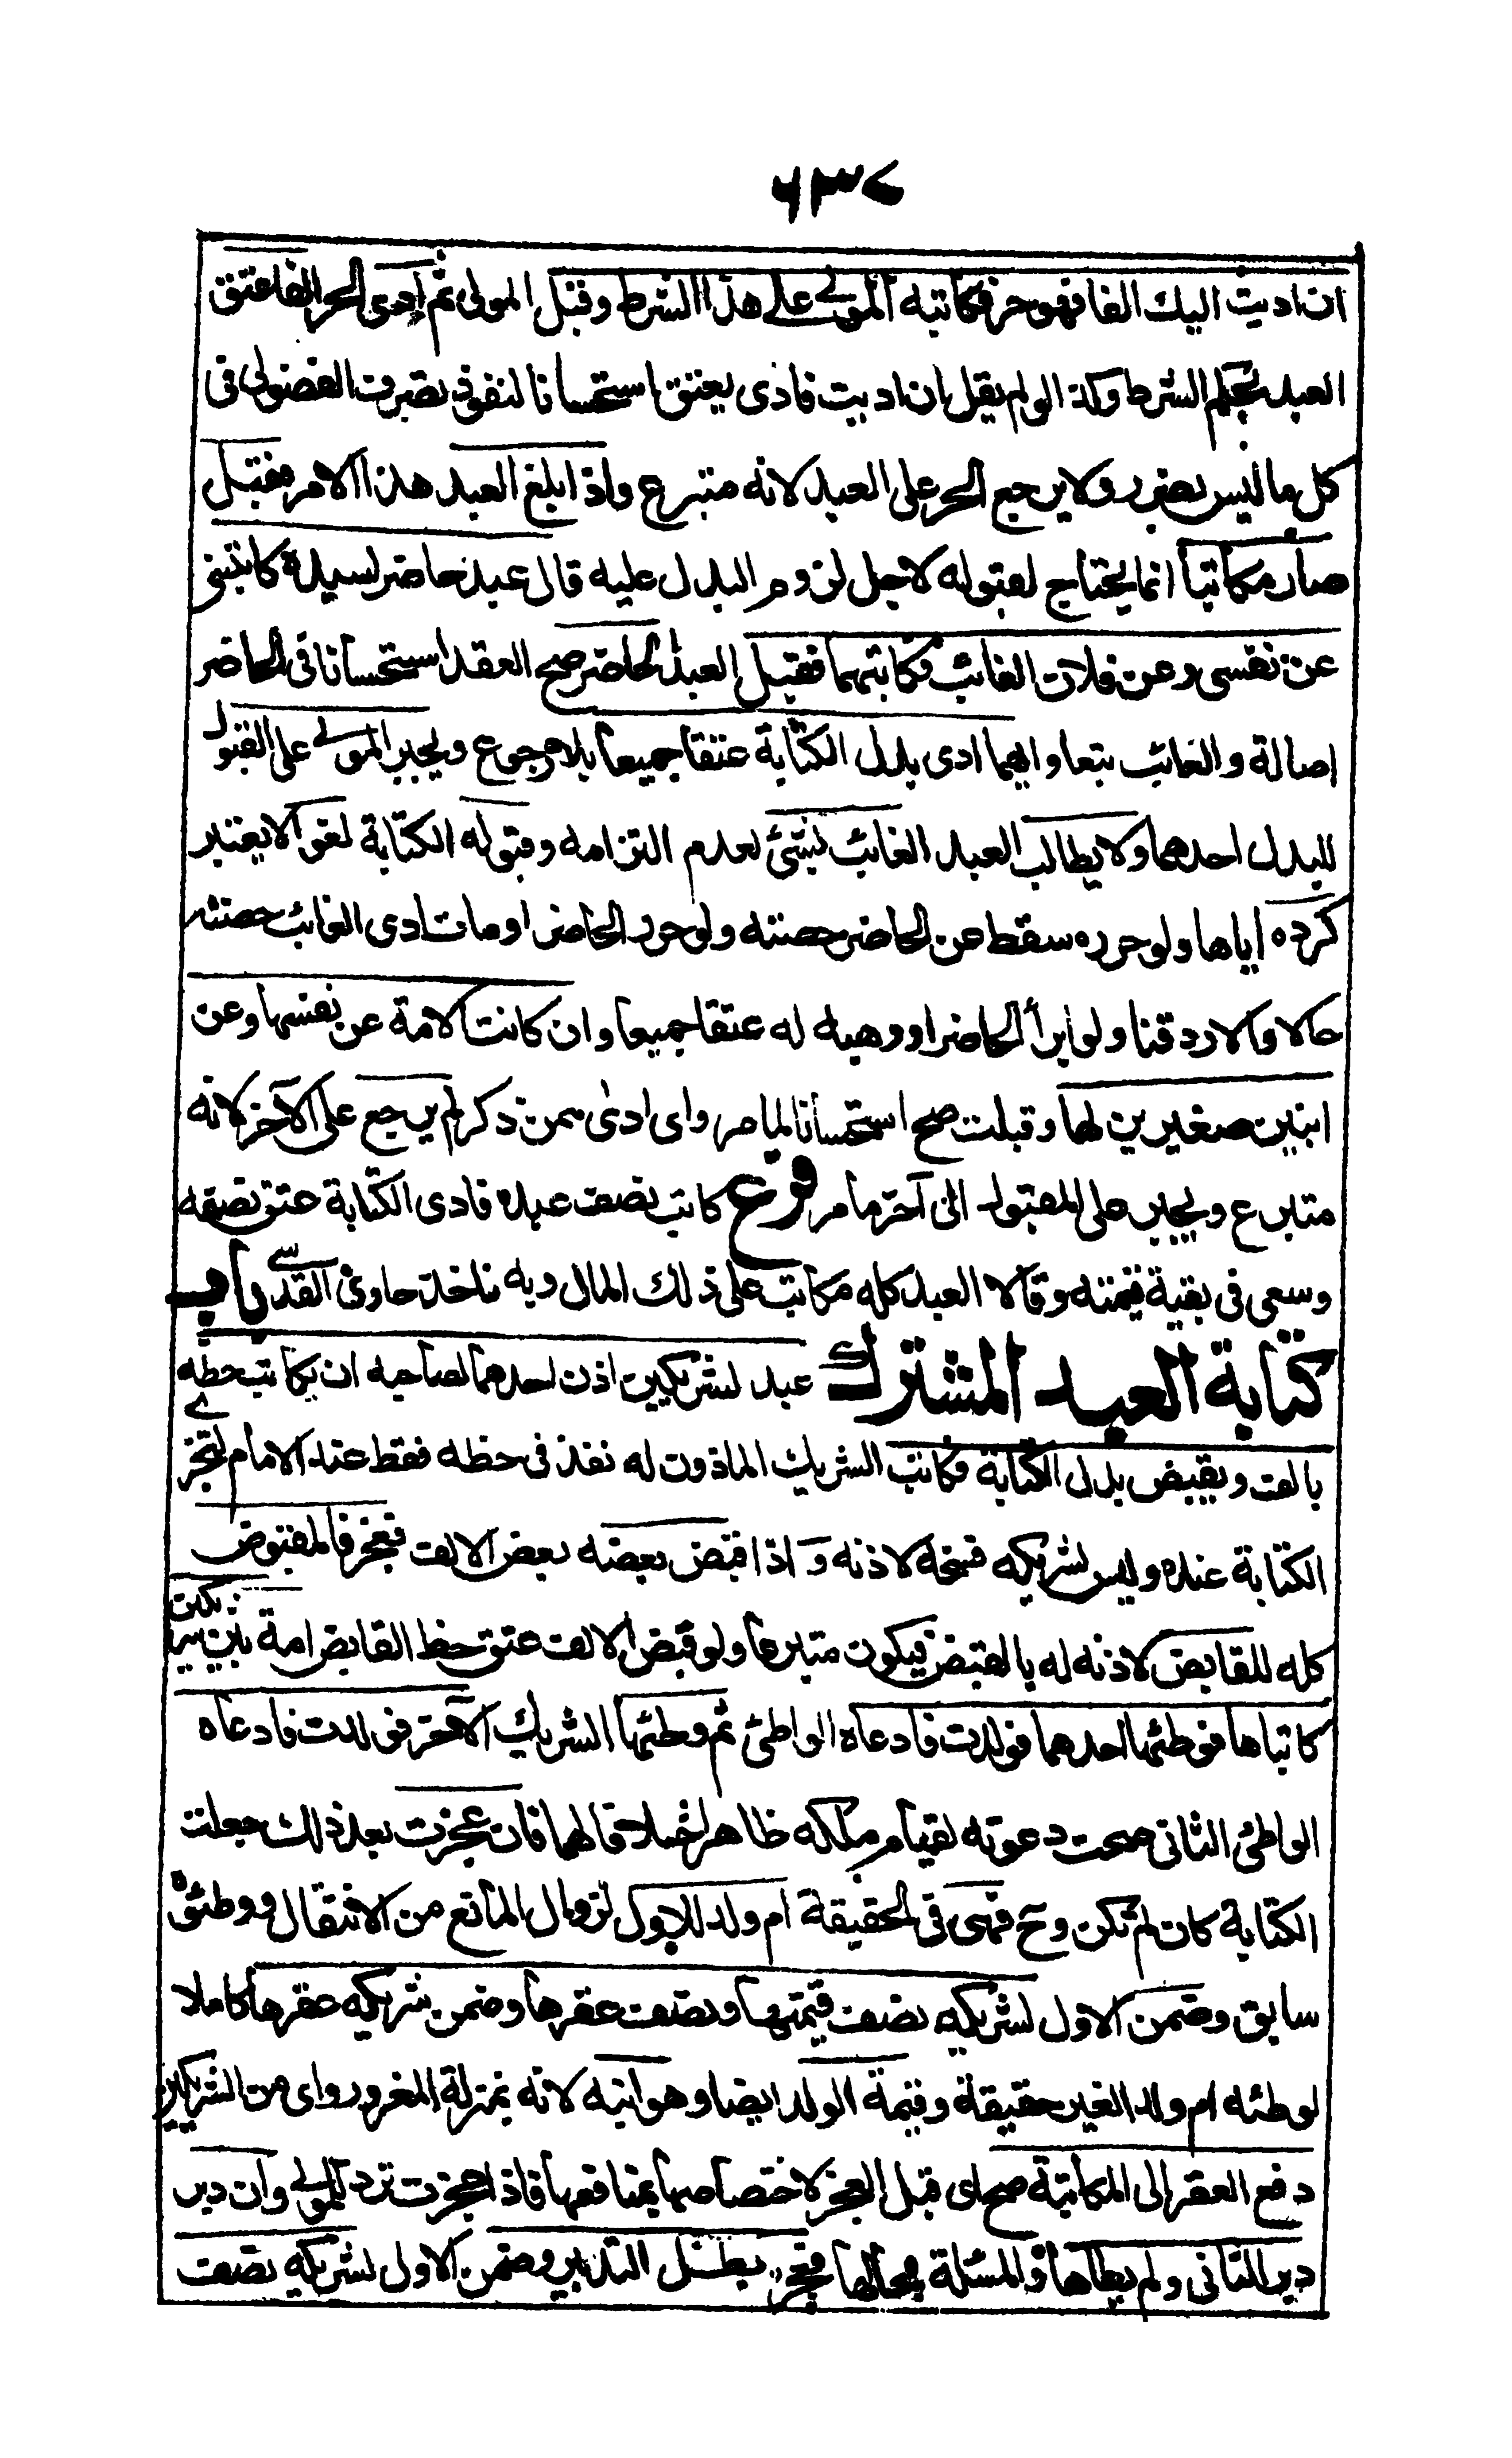 ٦٣٧
ان اديت اليك الفا فهو حر فكاتبه المولى على هذا الشرط وقبل المولى ثم ادى الحر الفا عتق
العبد بحكم الشرط وكذا لو لم يقل ان اديت فادى يعتق استحسانا لنفوذ تصرف الفضولى فى
كل ما ليس بضرر ولا يرجع الحر على العبد لانه متبرع واذا بلغ العبد هذا الامر فقبل
صار مكاتبا انما يحتاج لقبوله لاجل لزوم البدل عليه قال عبد حاضر لسيده كاتبنى
عن نفسى وعن فلان الغائب فكاتبهما فقبل العبد الحاضر صح العقد استحسانا فى الحاضر
اصالة والغائب تبعا وايهما ادى بدل الكتابة عتقا جميعا بلا رجوع ويجبر المولى على القبول
للبدل احدهما ولا يطالب العبد الغائب بشئ لعدم التزامه وقبوله الكتابة لغو الا يعتبر
كرده اياها ولو حرره سقط عن الحاضر حصته ولو حرر الحاضر او مات ادى الغائب حصته
حالا والا رد قنا ولو ابرأ الحاضر او وهبه له عتقا جميعا وان كانت الامة عن نفسها وعن
ابنين صغيرين لها وقبلت صح استحسانا لما مر واى ادى ممن ذكر لم يرجع على الآخر لانه
متبرع ويجبر على القبول الى آخر ما مر فرع كاتب نصف عبده فادى الكتابة عتق نصفه
وسعى فى بقية قيمته وقالا العبد كله مكاتب على ذلك المال وبه ناخذ حاوى القدسى باب
كتابة العبد المشترك عبد لشريكين اذن احدهما لصاحبه ان يكاتب حظه
بالف ويقبض بدل الكتابة فكاتب الشريك الماذون له نفذ فى حظه فقط عند الامام لتجزى
الكتابة عنده وليس لشريكه فسخه لاذنه و اذا قبض بعضه بعض الالف فعجز فالمقبوض
كله للقابض لاذنه له بالقبض فيكون متبرعا ولو قبض الالف عتق حظ القابض امة بين شريكين
كاتباها فوطئها احدهما فولدت فادعاه الواطئ ثم وطئها الشريك الآخر فولدت فادعاه
الواطئ الثانى صحت دعوته لقيام ملكه ظاهرا خلافا لهما فان عجزت بعد ذلك جعلت
الكتابة كان لم تكن وح فهى فى الحقيقة ام ولد للاول لزوال المانع من الانتقال ووطئه
سابق وضمن الاول لشريكه نصف قيمتها ونصف عقرها وضمن شريكه عقرها كاملا
لوطئه ام ولد الغير حقيقة وقيمة الولد ايضا وهو ابنه لانه بمنزلة المغرور واى من الشريكين
دفع العقر الى المكاتبة صح اى قبل العجز لاختصاصها بمنافعها فاذا عجزت ترد للمولى وان دبر
دبر الثانى ولم يطاها والمسئلة بحالها فعجزت بطل التدبير وضمن الاول لشريكه نصف